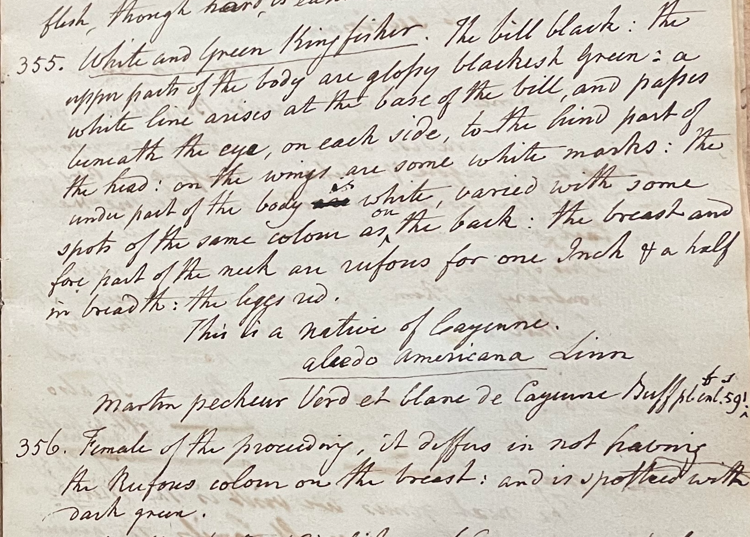 flesh, though hard, is
355. White and Green Kingfisher. The bill black: the
upper parts of the body are glossy blackish green: a
white line arises at the base of the bill, and passes
beneath the eye, on each side, to the hind part of
the head: on the wings are some white marks: the
under part of the body is white, varied with some
spots of the same colour as on the back: the breast and
fore part of the neck are rufous for one Inch & a half
in breadth: the leggs red.
This is a native of Cayenne.
alcedo americana Linn
Martin pecheur Verd et blanc de Cayenne Buff pl: enl: 591
356. Female of the preceeding, it differs in not having
the Rufous colour on the breast: and is spotted with
dark green.